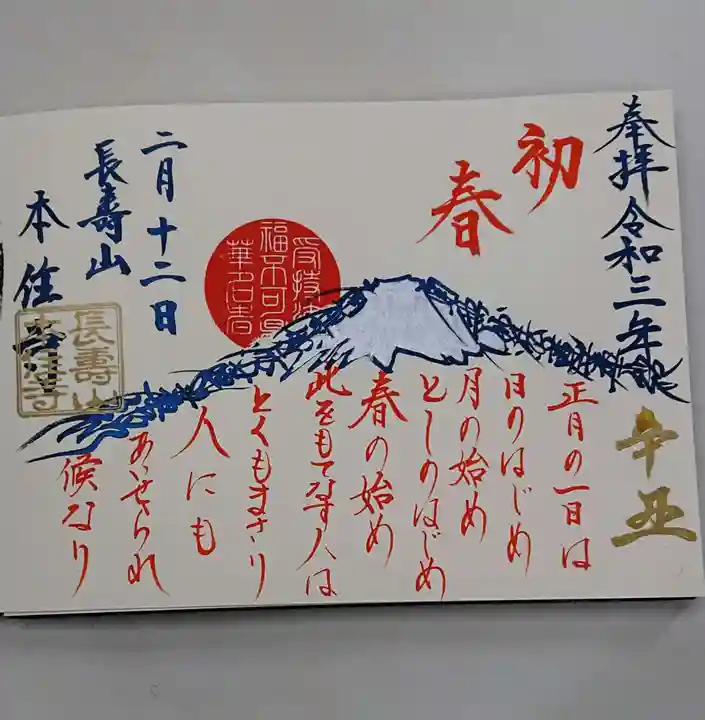 奉拝 令和三年
辛丑
初
春
正月の一日は
日のはじめ
月の始め
としのはじめ
春の始め
此をもてなす人は
とくもまさり
人にも
あいせられ
候なり
二月十二日
長壽山
本住寺
長壽山
本住寺